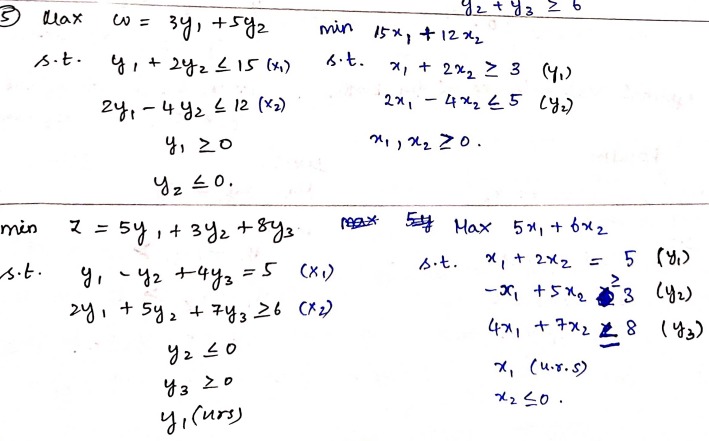 y₂ + y₃ ≥ 6
⑤ Max w = 3y₁ + 5y₂
s.t. y₁ + 2y₂ ≤ 15 (x₁)
2y₁ - 4y₂ ≤ 12 (x₂)
y₁ ≥ 0
y₂ ≤ 0.
min 15x₁ + 12x₂
s.t. x₁ + 2x₂ ≥ 3 (y₁)
2x₁ - 4x₂ ≤ 5 (y₂)
x₁, x₂ ≥ 0.
min z = 5y₁ + 3y₂ + 8y₃
s.t. y₁ - y₂ + 4y₃ = 5 (x₁)
2y₁ + 5y₂ + 7y₃ ≥ 6 (x₂)
y₂ ≤ 0
y₃ ≥ 0
y₁ (urs)
max 5y Max 5x₁ + 6x₂
s.t. x₁ + 2x₂ = 5 (y₁)
-x₁ + 5x₂ ≥ 3 (y₂)
4x₁ + 7x₂ ≤ 8 (y₃)
x₁ (u.r.s)
x₂ ≤ 0.